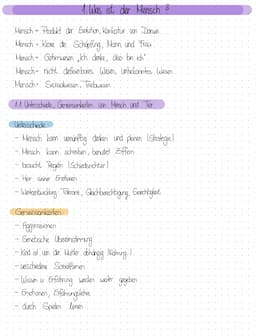 1. Was ist der Mensch?
Mensch = Produkt der Evolution, Konkurrenz von Darwin
Mensch = Krone der Schöpfung, Mann und Frau
Mensch = Geisteswesen „Ich denke, also bin ich“
Mensch = nicht definierbares Wesen, unbekanntes Wesen
Mensch = Sexualwesen, Triebwesen
1.1 Unterschiede, Gemeinsamkeiten von Mensch und Tier
Unterschiede
- Mensch kann vernünftig denken und planen (Strategie)
- Mensch kann schreiben, benutzt Ziffern
- braucht Regeln (Schiedsrichter)
- Herr seiner Emotionen
- Weiterentwicklung Toleranz, Gleichberechtigung, Gerechtigkeit
Gemeinsamkeiten
- Aggressionen
- Genetische Übereinstimmung
- Kind ist von der Mutter abhängig (Nahrung)
- verschiedene Sozialformen
- Wissen u. Erfahrung werden weiter gegeben
- Emotionen,
- durch Spielen lernen